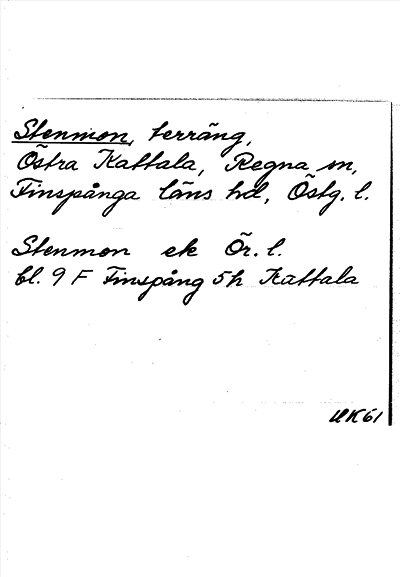 Stenmon, terräng,
Östra Kattala, Regna sn,
Finspånga läns hd, Östg. l.
Stenmon ek Ör. l.
bl. 9 F Finspång 5h Kattala
UK61